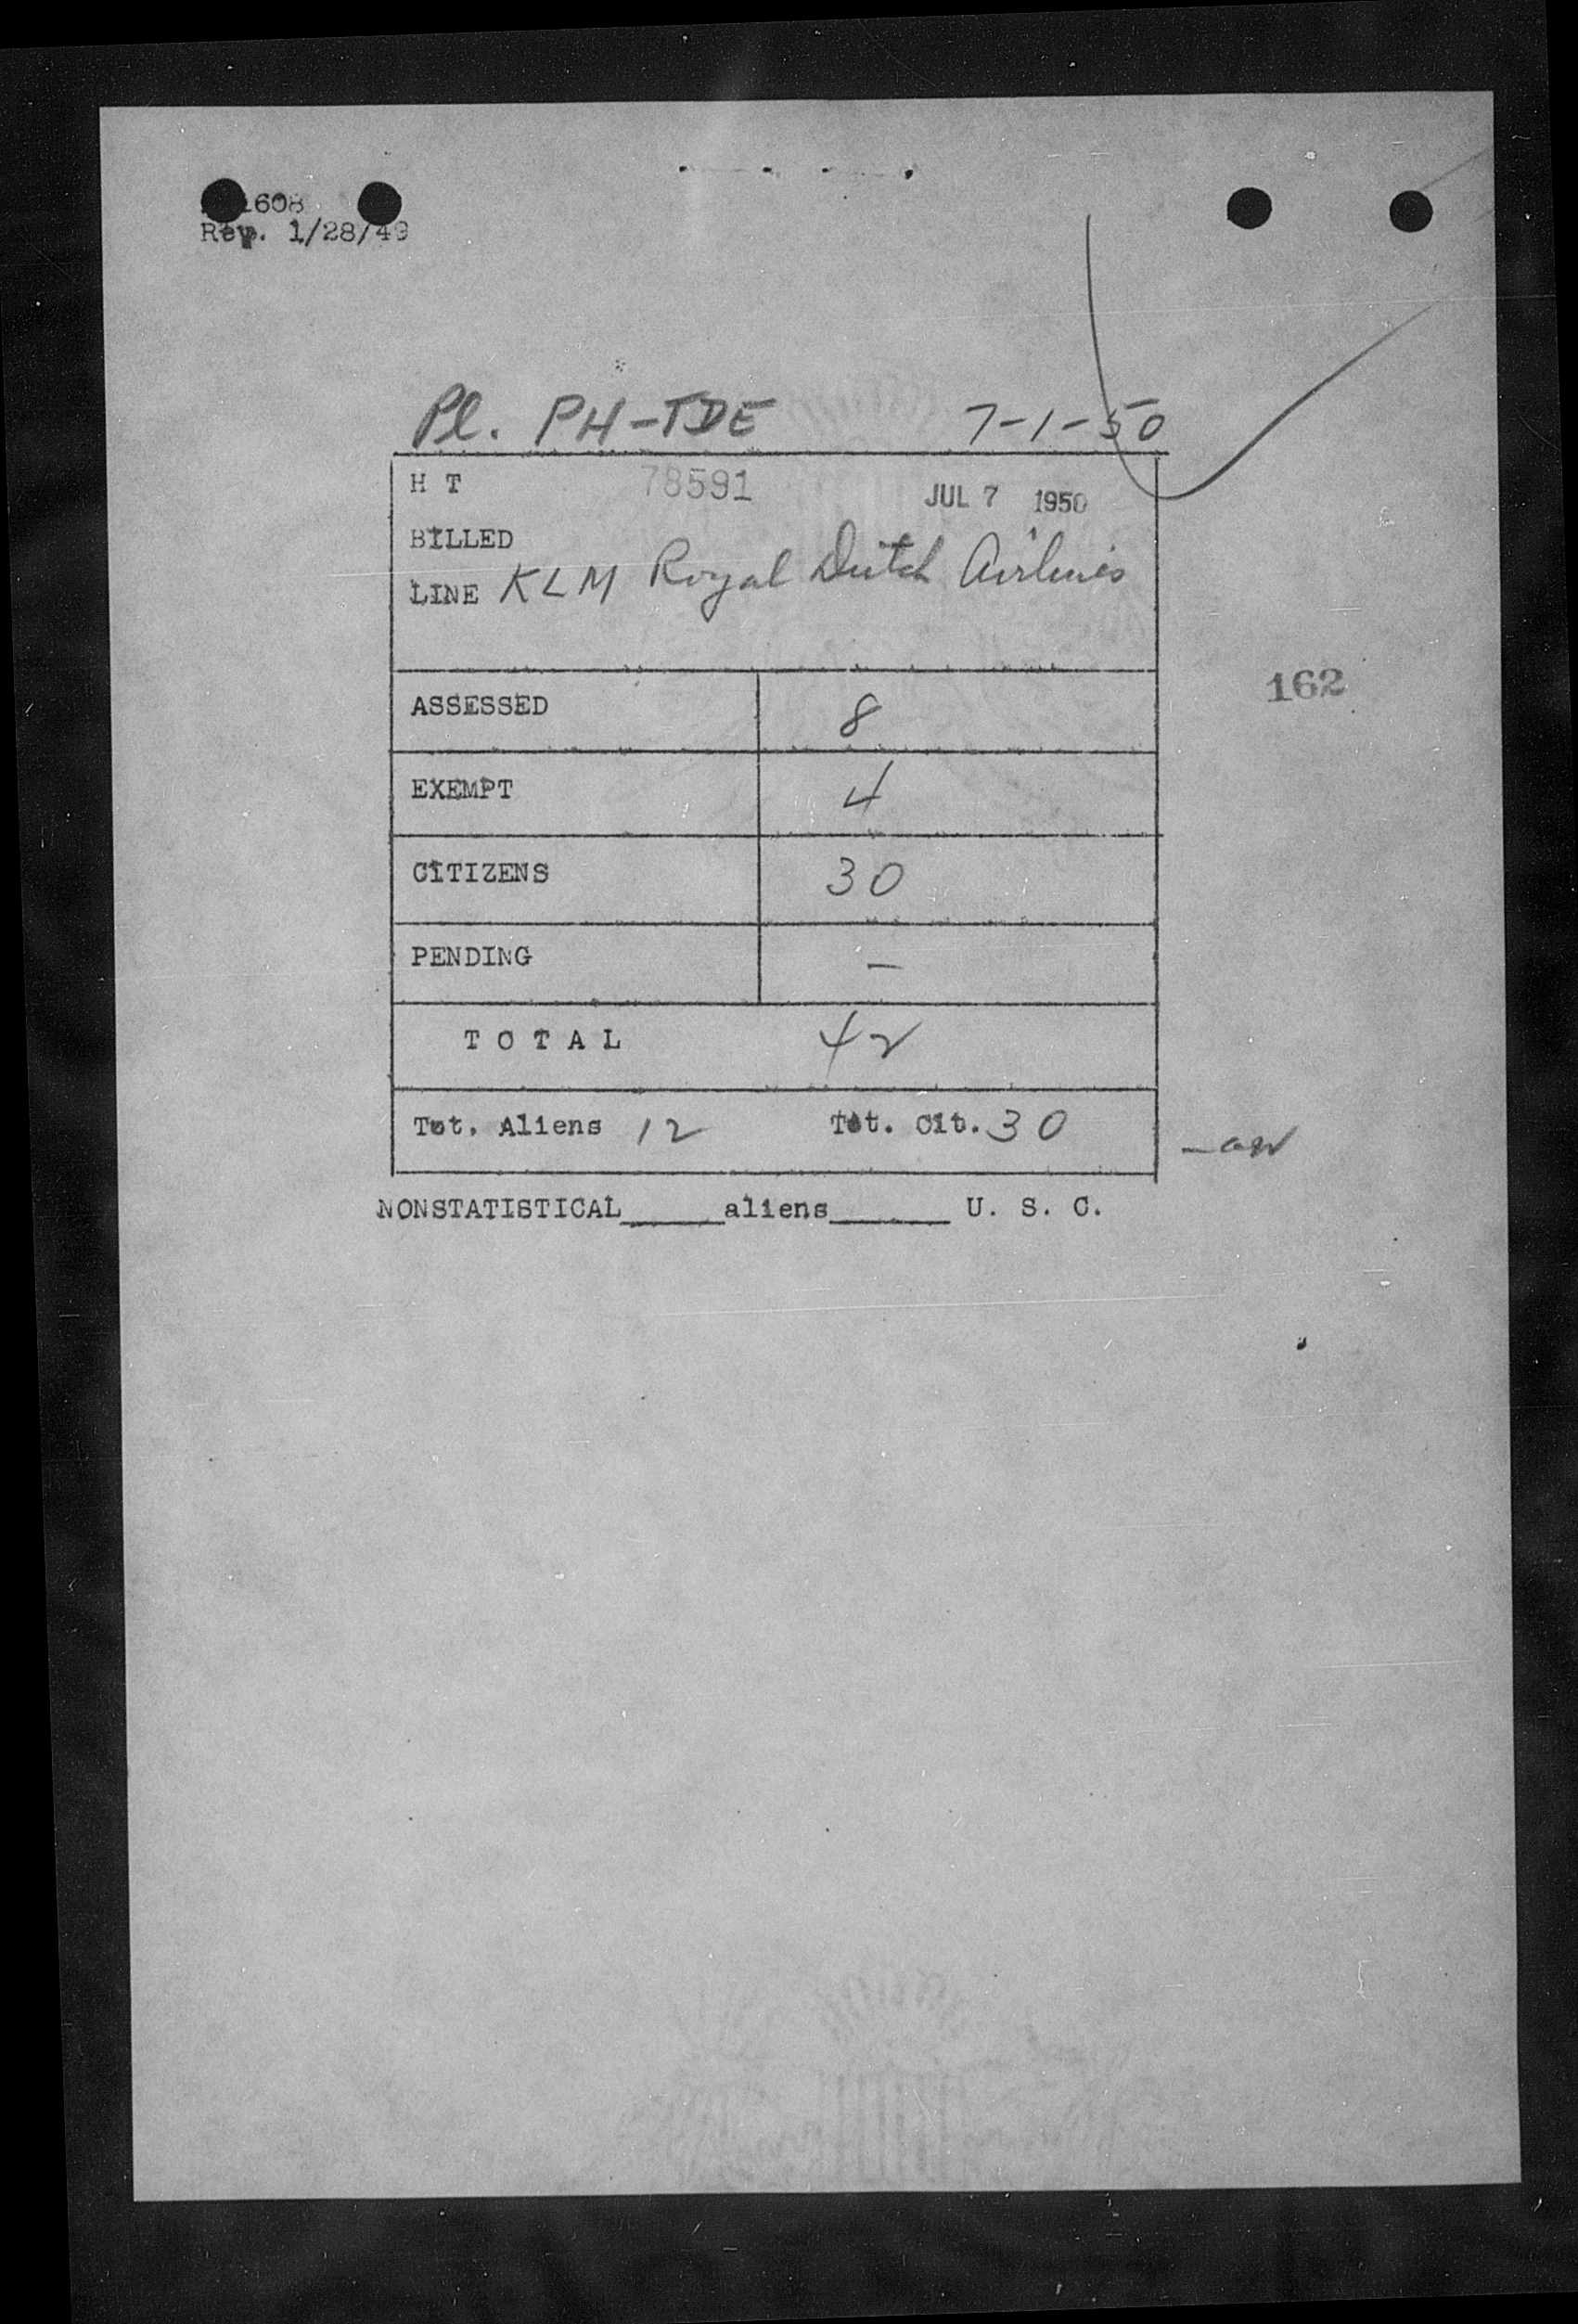 1608
Rev. 1/28/49
Pl. PH-TDE 7-1-50
H T 78591 JUL 7 1950
BILLED
LINE KLM Royal Dutch Airlines
162
ASSESSED 8
EXEMPT 4
CITIZENS 30
PENDING –
T O T A L 42
Tot. Aliens 12 Tot. Cit. 30
NONSTATISTICAL_____aliens______ U. S. C.